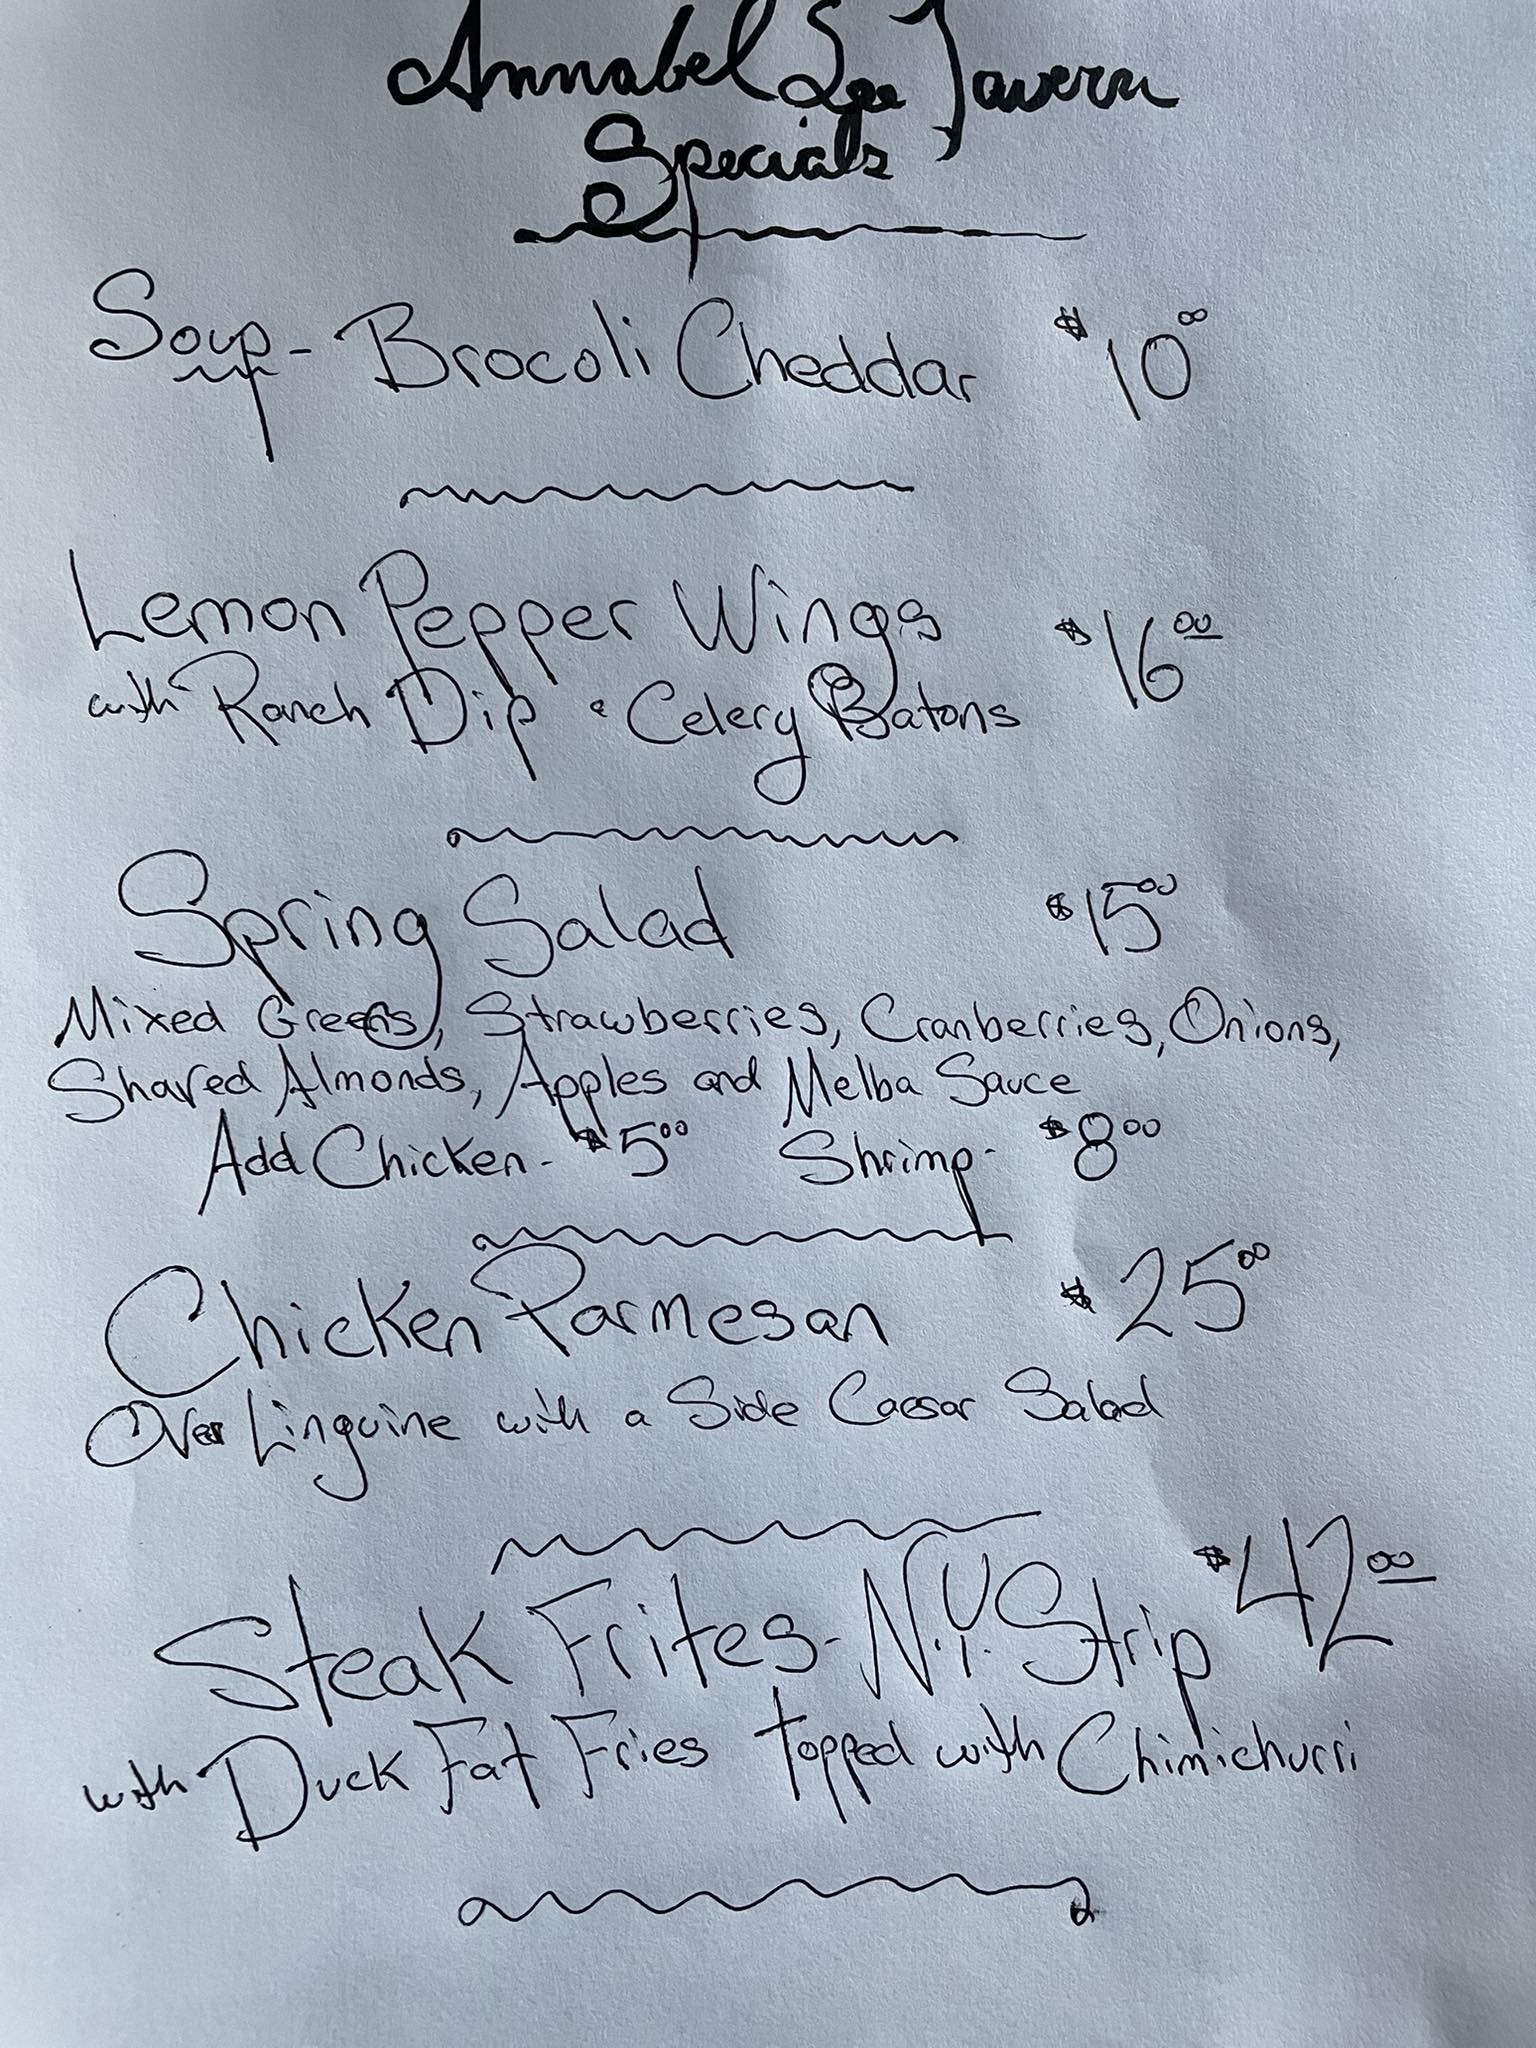 Annabel Lee Tavern
Specials
Soup - Brocoli Cheddar $10.00
Lemon Pepper Wings $16.00
with Ranch Dip & Celery Batons
Spring Salad $15.00
Mixed Greens, Strawberries, Cranberries, Onions,
Shaved Almonds, Apples and Melba Sauce
Add Chicken - $5.00 Shrimp - $8.00
Chicken Parmesan $25.00
Over Linguine with a Side Caesar Salad
Steak Frites - N.Y. Strip $42.00
with Duck Fat Fries topped with Chimichurri